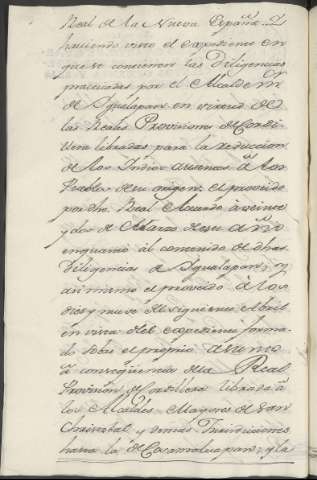 Real de la Nueva España. Y
haviendo visto el expediente en
que se contienen las Diligencias
practicadas por el Alcalde mr
de Igualapan en virtud de
las Reales Provisiones de Cordi-
llera libradas para la reduccion
de los Indios ausentes á los
Pueblos de su origen, el proveido
por dho Real Acuerdo à veinte
y dos de Marzo de este año
en quanto al contenido de dhas
Diligencias de Igualapan, y
asi mismo el proveido á los
dies y nueve del siguiente Abril
en vista del expediente forma-
do sobre el proprio asunto
á consequencia de la Real
Provision de Cordillera librada á
los Alcaldes Mayores de San
Christobal, y demás Jurisdicciones
hasta la de Cosamaluapan, y la